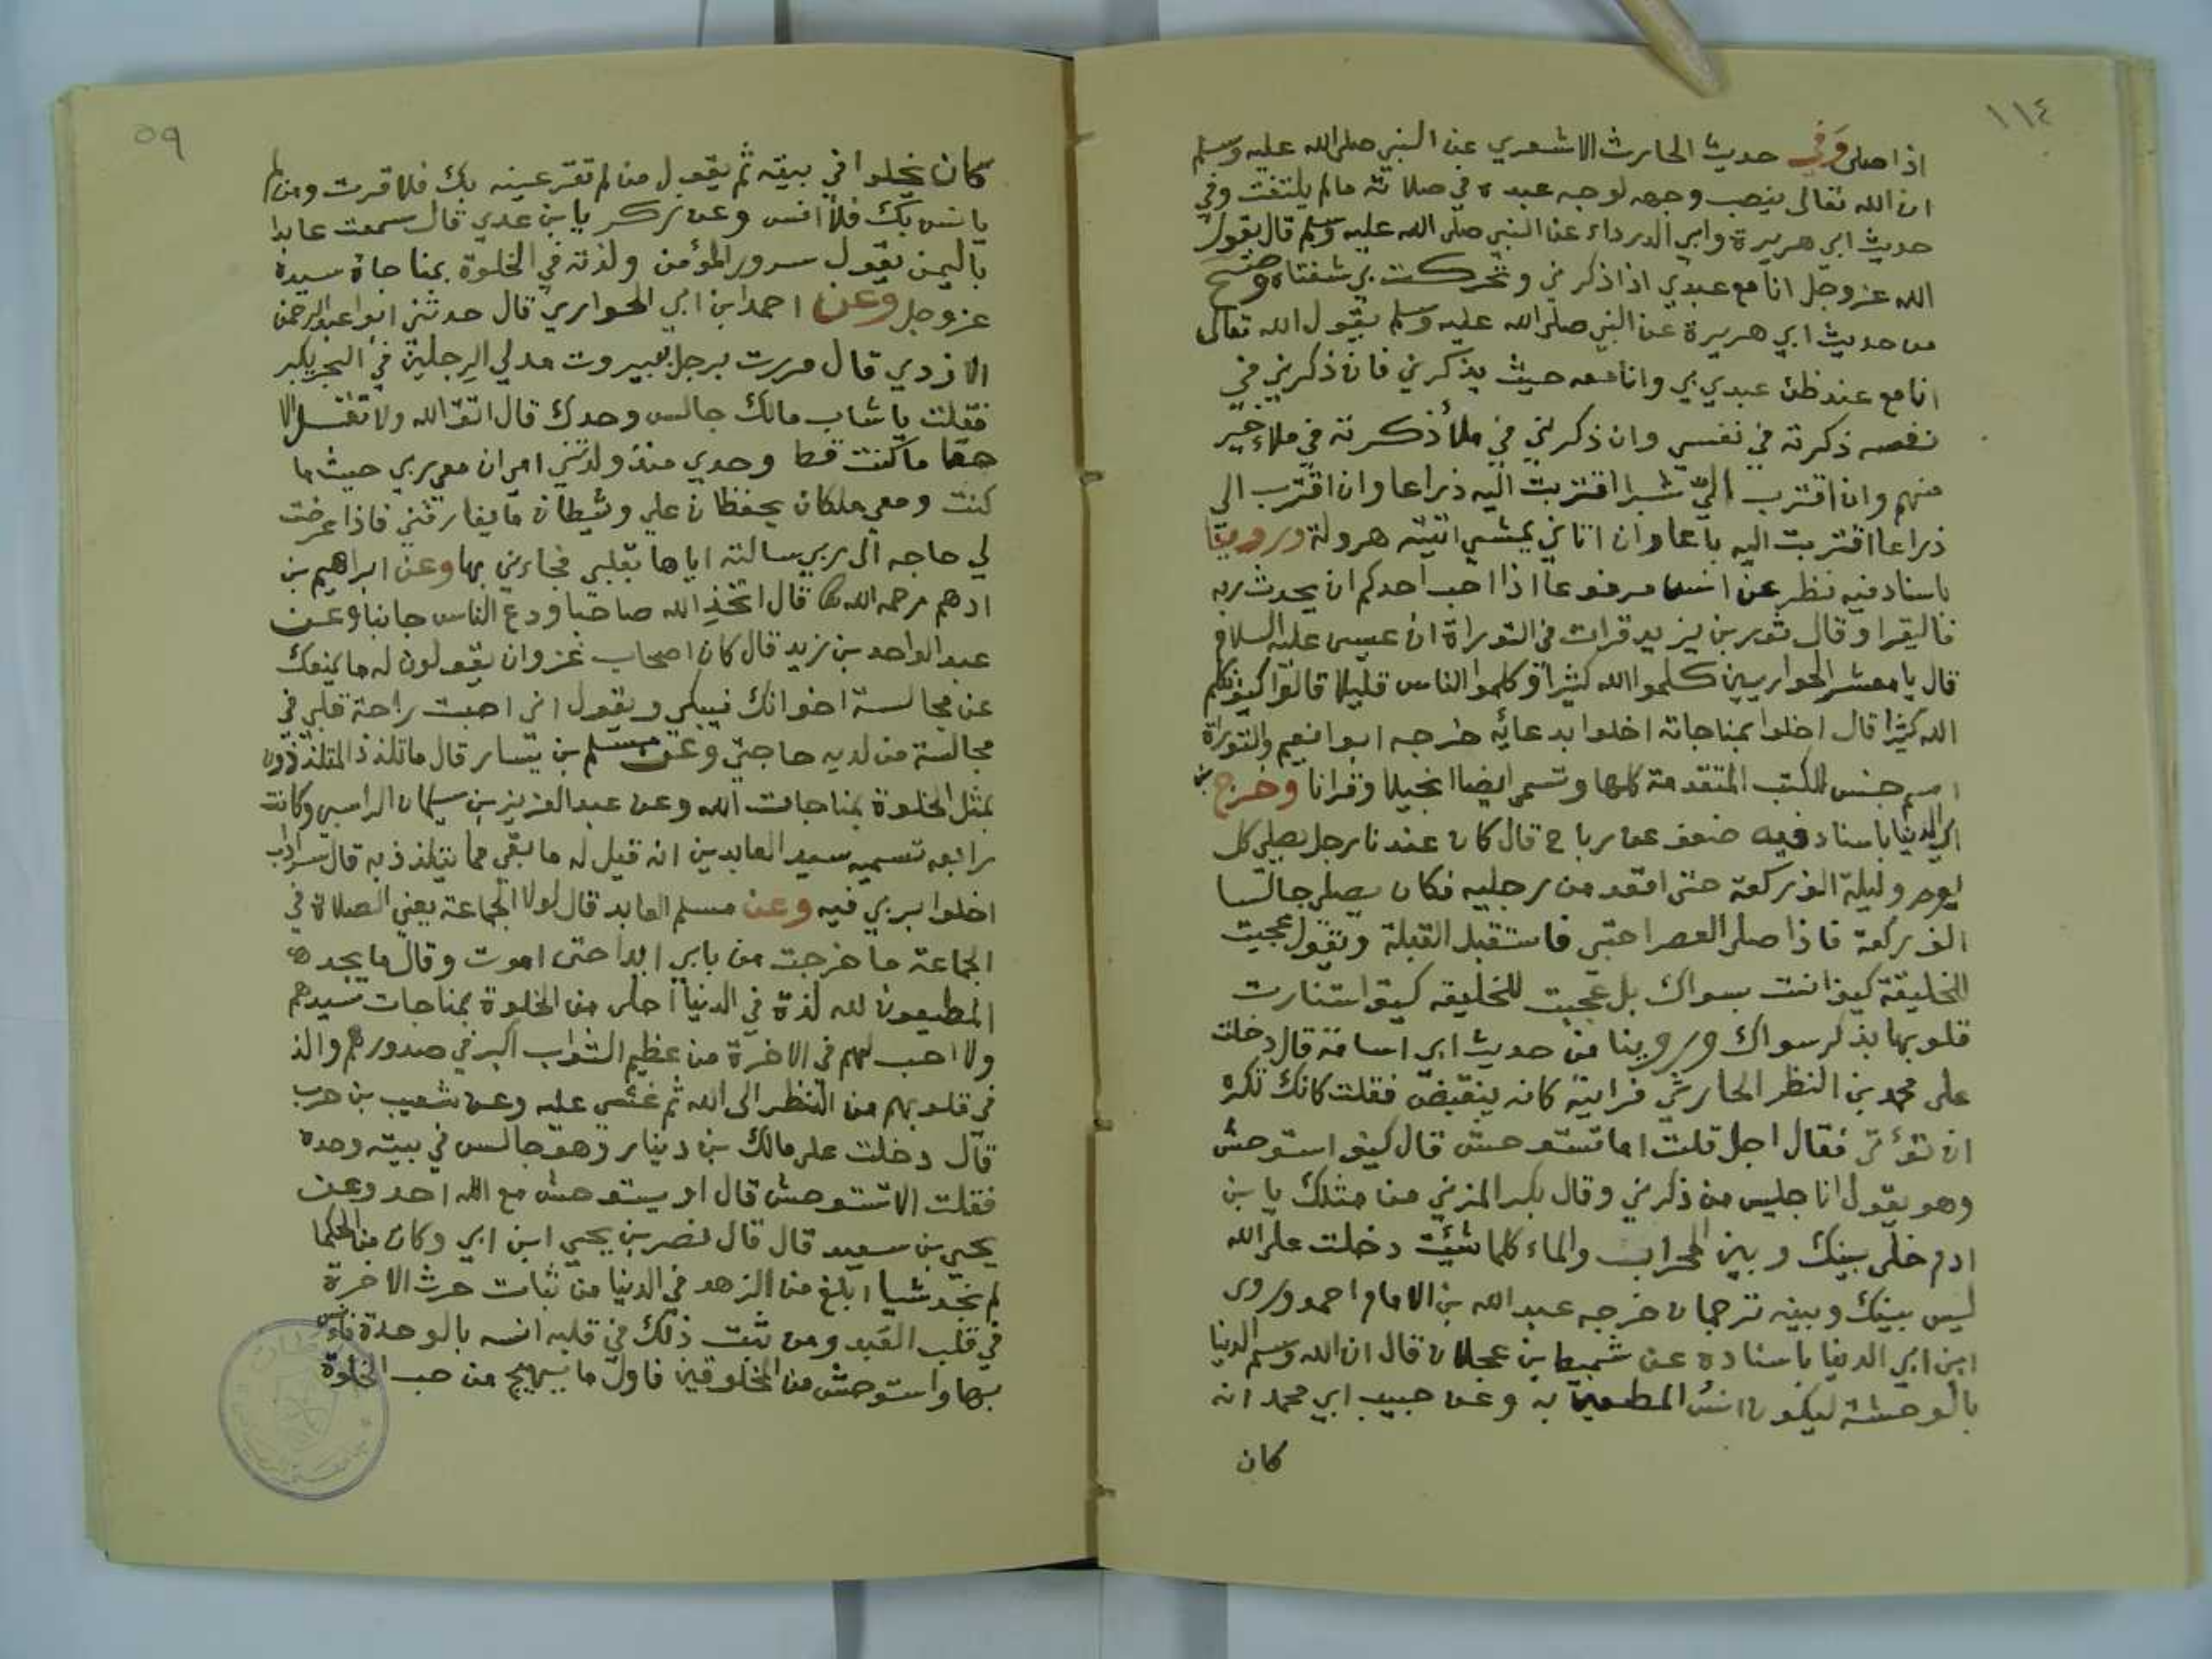 ١١٤
اذا صلى وفي حديث الحارث الاشعري عن النبي صلى الله عليه وسلم
ان الله تعالى ينصب وجهه لوجه عبده في صلاته مالم يلتفت وفي
حديث ابي هريرة وابي الدرداء عن النبي صلى الله عليه وسلم قال يقول
الله عز وجل انا مع عبدي اذا ذكرني وتحركت بي شفتاه وصح
من حديث ابي هريرة عن النبي صلى الله عليه وسلم يقول الله تعالى
انا مع عند ظن عبدي بي وانا معه حيث يذكرني فان ذكرني في
نفسه ذكرته في نفسي وان ذكرني في ملأ ذكرته في ملاء خير
منهم وان اقترب الي شبرا اقتربت اليه ذراعا وان اقترب الي
ذراعا اقتربت اليه باعا وان اتاني يمشي اتيته هرولة وروينا
باسناد فيه نظر عن انس مرفوعا اذا احب احدكم ان يحدث ربه
فاليقرا وقال ثور بن يزيد قرات في التوراة ان عيسى عليه السلام
قال يا معشر الحواريين كلموا الله كثيرا وكلموا الناس قليلا قالوا كيف نكلم
الله كثيرا قال اخلوا بمناجاته اخلوا بدعائه خرجه ابوا نعيم والتوراة
اسم جنس للكتب المتقدمة كلها وتسمى ايضا انجيلا وقرانا وخرج بن
ابي الدنيا باسناد فيه ضعف عن رباح قال كان عندنا رجل يصلي كل
يوم وليلة الف ركعة حتى اقعد من رجليه فكان يصلي جالسا
الف ركعة فاذا صلى العصر احتبى فاستقبل القبلة ويقول عجبت
للخليقة كيف انست بسواك بل عجبت للخليقه كيف استنارت
قلوبها بذكر سواك وروينا من حديث ابي اسامة قال دخلت
على محمد بن النظر الحارثي فرايته كانه ينقبض فقلت كانك تكره
ان تؤتى فقال اجل قلت اما تستوحش قال كيف استوحش
وهو يقول انا جليس من ذكرني وقال بكر المزني من مثلك يا بن
ادم خلى بينك وبين المحراب والماء كلما شئت دخلت على الله
ليس بينك وبينه ترجمان خرجه عبد الله بن الامام احمد وروى
ابن ابي الدنيا باسناده عن شميط بن عجلان قال ان الله وسم الدنيا
بالوحشة ليكون انس المطيعين به وعن حبيب ابي محمد انه
كان
٥٩
كان يخلوا في بيته ثم يقول من لم تقر عينه بك فلا قرت ومن لم
يانس بك فلا انس وعن زكريا بن عدي قال سمعت عابدا
باليمن يقول سرور المؤمن ولذته في الخلوة بمناجاة سيده
عز وجل وعن احمد ابن ابي الحواري قال حدثني ابوا عبد الرحمن
الازدي قال مررت برجل ببيروت مدلي الرجلين في البحر يكبر
فقلت يا شاب مالك جالس وحدك قال اتق الله ولا تقل الا
حقا ما كنت قط وحدي منذ ولدتني امي ان معي ربي حيث ما
كنت ومعي ملكان يحفظان علي وشيطان ما يفارقني فاذا عرضت
لي حاجه الى ربي سالته اياها بقلبي فجاءني بها وعن ابراهيم بن
ادهم رحمه الله قال اتخذ الله صاحبا ودع الناس جانبا وعن
عبد الواحد بن زيد قال كان اصحاب غزوان يقولون له ما يمنعك
عن مجالسة اخوانك فيبكي ويقول اني اصبت راحة قلبي في
مجالسة من لديه حاجتي وعن مسلم بن يسار قال ما تلذذ المتلذذون
بمثل الخلوة بمناجات الله وعن عبد العزيز بن سليمان الراسبي وكانت
رابعه تسميه سيد العابدين انه قيل له ما بقي مما يتلذذ به قال سرداب
اخلوا بربي فيه وعن مسلم العابد قال لولا الجماعة يعني الصلاة في
الجماعة ما خرجت من بابي ابدا حتى اموت وقال ما يجده
المطيعون لله لذة في الدنيا احلى من الخلوة بمناجات سيدهم
ولا احب لهم في الاخرة من عظيم الثواب اكبر في صدورهم والذ
في قلوبهم من النظر الى الله ثم غشي عليه وعن شعيب بن حرب
قال دخلت على مالك بن دينار وهو جالس في بيته وحده
فقلت الا تستوحش قال او يستوحش مع الله احد وعن
يحيى بن سعيد قال قال نصر بن يحيى ابن ابي وكان من الحكما
لم نجد شيا ابلغ من الزهد في الدنيا من ثبات حرث الاخرة
في قلب العبد ومن ثبت ذلك في قلبه انسه بالوحدة فانس
بها واستوحش من المخلوقين فاول ما يهيج من حب الخلوة